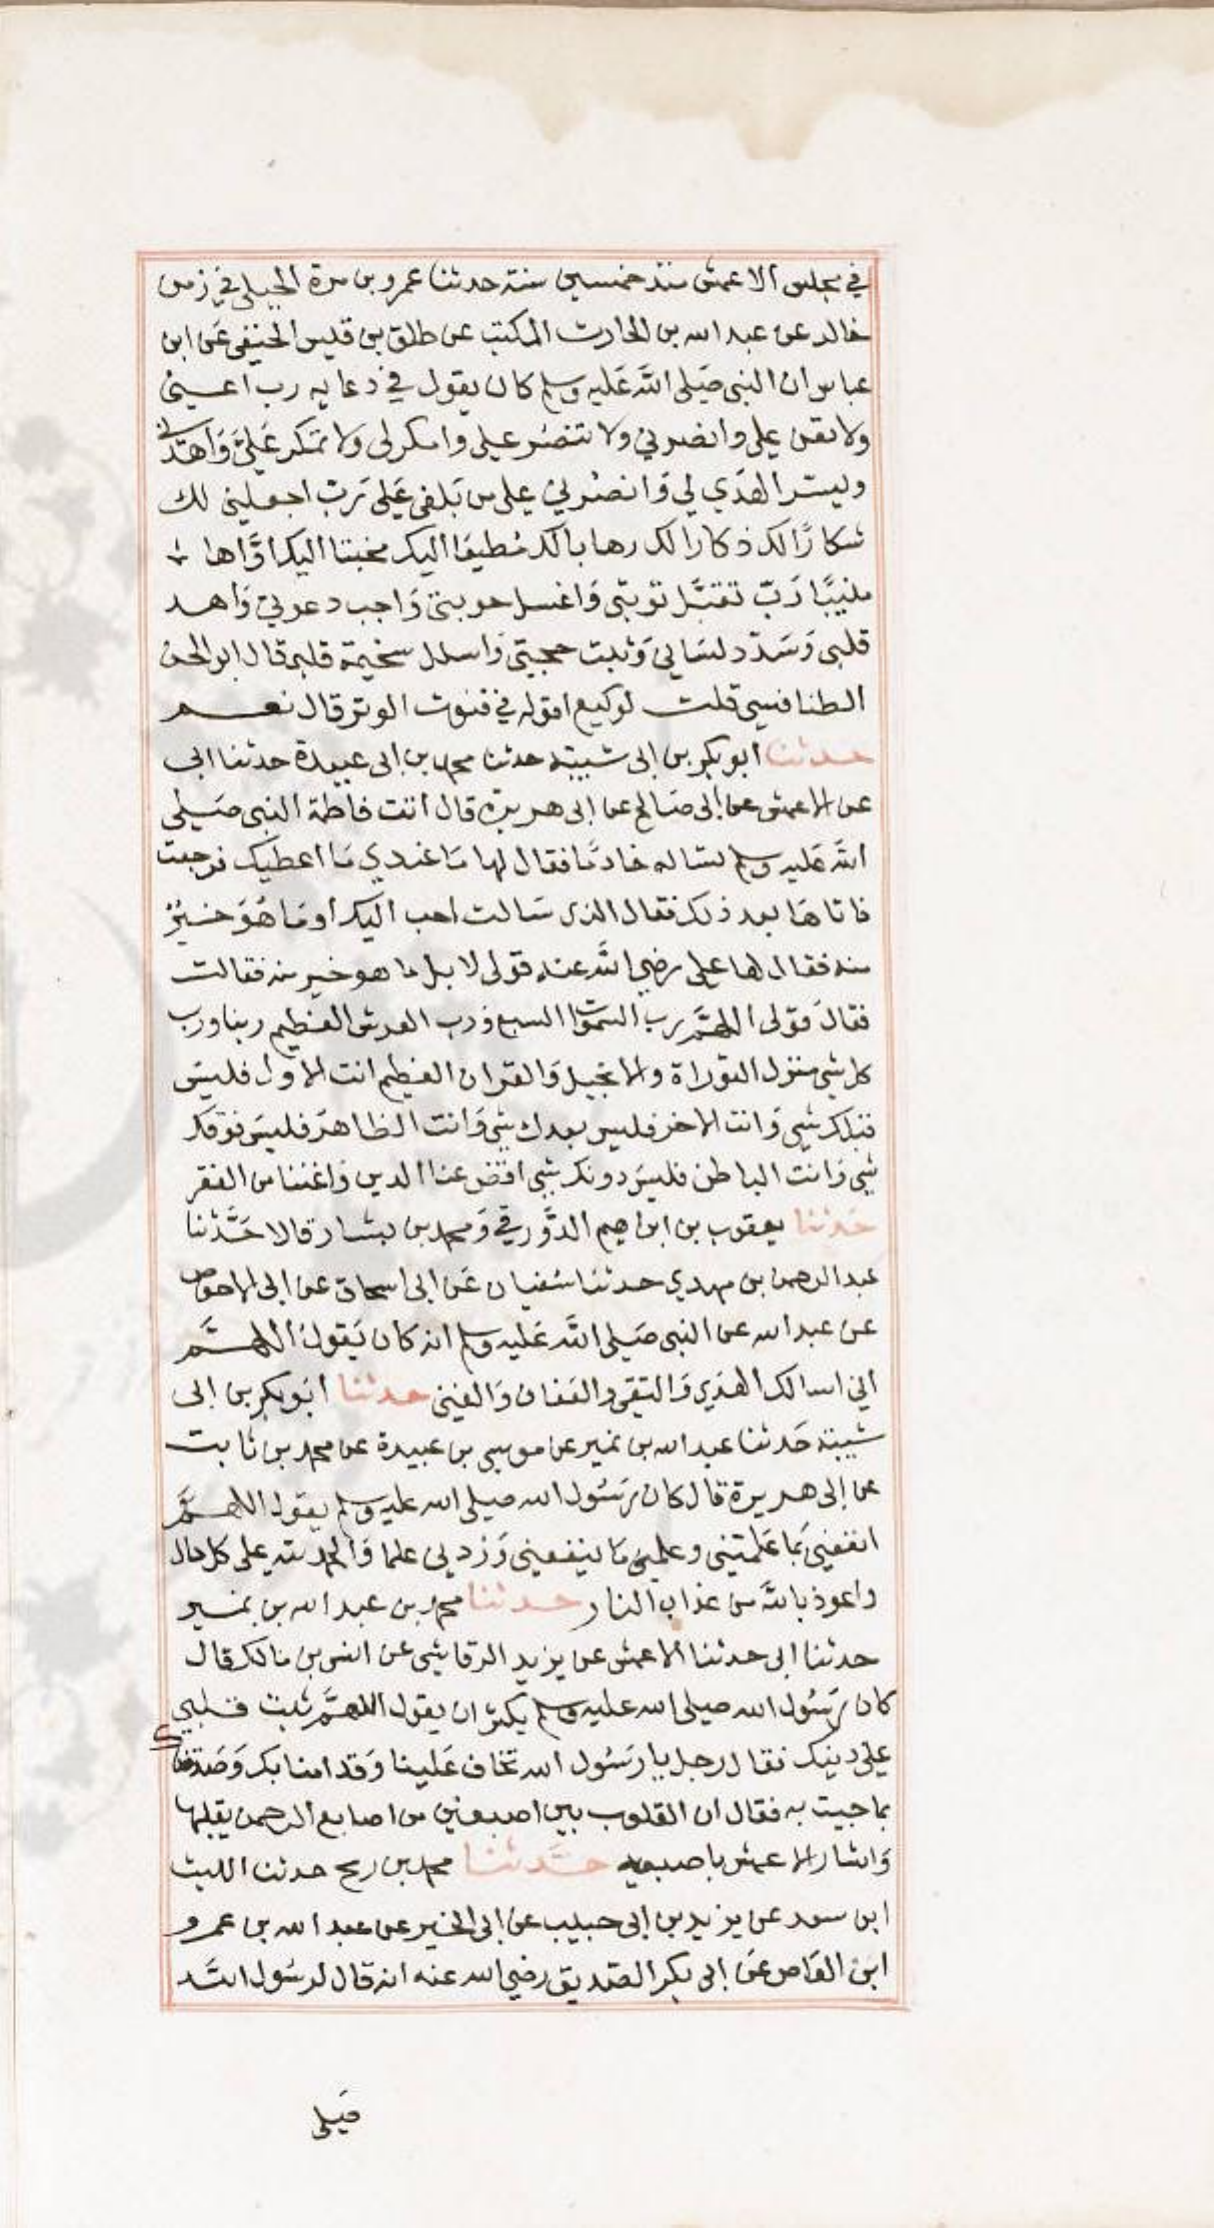 في مجلس الاعمش منذ خمسين سنة حدثنا عمرو بن مرة الجملي في زمن
خالد عن عبد الله بن الحارث المكتب عن طلق بن قيس الحنفي عن ابن
عباس ان النبي صَلى اللَّه عَليه وسلم كان يقول في دعايه رب اعني
ولا تعن علي وانصرني ولا تنصُر علي وامكر لي ولا تمكر عَليَّ وَاهدني
ويسر الهدَي لي وَانصُرني على من بَغى عَلى رَب اجعلني لك
شكارًا لك ذكارا لك رهابا لك مُطيعا اليك مخبتا اليك اوَّاها
منيبًا رَبّ تقبَّل توبتي وَاغسل حوبتي وَاجب دعوتي وَاهد
قلبي وَسَدّد لسَاني وَثبت حجتي وَاسلل سخيمة قلبي قال ابو الحسن
الطنافسي قلت لوكيع اقوله في قنوت الوتر قال نعم
حدثنا ابو بكر بن ابي شيبة حدثنا محمد بن ابي عبيدة حدثنا ابي
عن الاعمش عن ابي صَالح عن ابي هريرة قال اتت فاطمة النبي صَلى
اللَّه عَليه وسلم تساله خادمًا فقال لها مَا عندي مَا اعطيك فرجعت
فاتاهَا بعد ذلك فقال الذي سَالت احب اليك او مَا هُوَ خيرٌ
منه فقال لها علي رضي اللَّه عنه قولى لا بل ما هو خير منه فقالت
فقالَ قولى اللهمَّ رب السموات السبع وَرب العرش العظيم ربنا ورب
كل شي منزل التوراة والانجيل وَالقران العظيم انت الاول فليسَ
قبلك شي وَانت الاخر فليس بعدك شي وَانت الظاهر فليسَ فوقك
شي وَانت الباطن فليسَ دونك شي اقض عنا الدين وَاغننا من الفقر
حَدثنا يعقوب بن ابراهيم الدَّورقي وَمحمد بن بشار قالا حَدَّثنا
عبد الرحمن بن مهدي حدثنا سُفيان عَن ابى اسحاق عن ابي الاحوص
عن عبد الله عن النبي صَلى اللَّه عَليه وسلم انه كان يَقول اللهمَّ
اني اسالك الهدَي وَالتقى والعَفاف وَالغنى حدثنا ابَو بكر بن ابى
شيبة حَدثنا عبد الله بن نمير عن موسى بن عبيدة عن محمد بن ثابت
عن ابي هريرة قال كان رَسُول الله صلى الله عليه وسلم يقول اللهمَّ
انفعني بمَا عَلمتني وعلمني مَا ينفعني وَزدني علما وَالحمد لله على كل حال
واعوذ باللَّه من عذاب النار حدثنا محمد بن عبد الله بن نمير
حدثنا ابي حدثنا الاعمش عن يزيد الرقاشي عن انس بن مَالك قال
كان رَسُول الله صلى الله عليه وسلم يكثر ان يقول اللهمَّ ثبت قلبي
على دينك فقال رجل يا رَسُول الله تخاف عَلينا وَقد امنا بك وَصَدقناك
بما جيت به فقال ان القلوب بين اصبعين من اصابع الرحمن يقلبها
وَاشار الاعمش باصبعيه حَدَّثنا محمد بن رمح حدثنا الليث
ابن سعد عن يزيد بن ابي حبيب عن ابي الخير عن عبد الله بن عمرو
ابن العَاص عَن ابي بكر الصّديق رضي الله عنه انه قال لرسُول اللَّه
صَلى